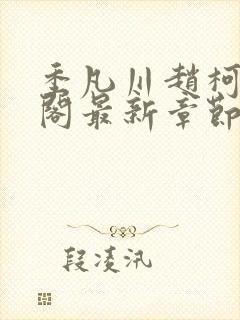 季凡川趙柯
閣最新章節
段凌汛